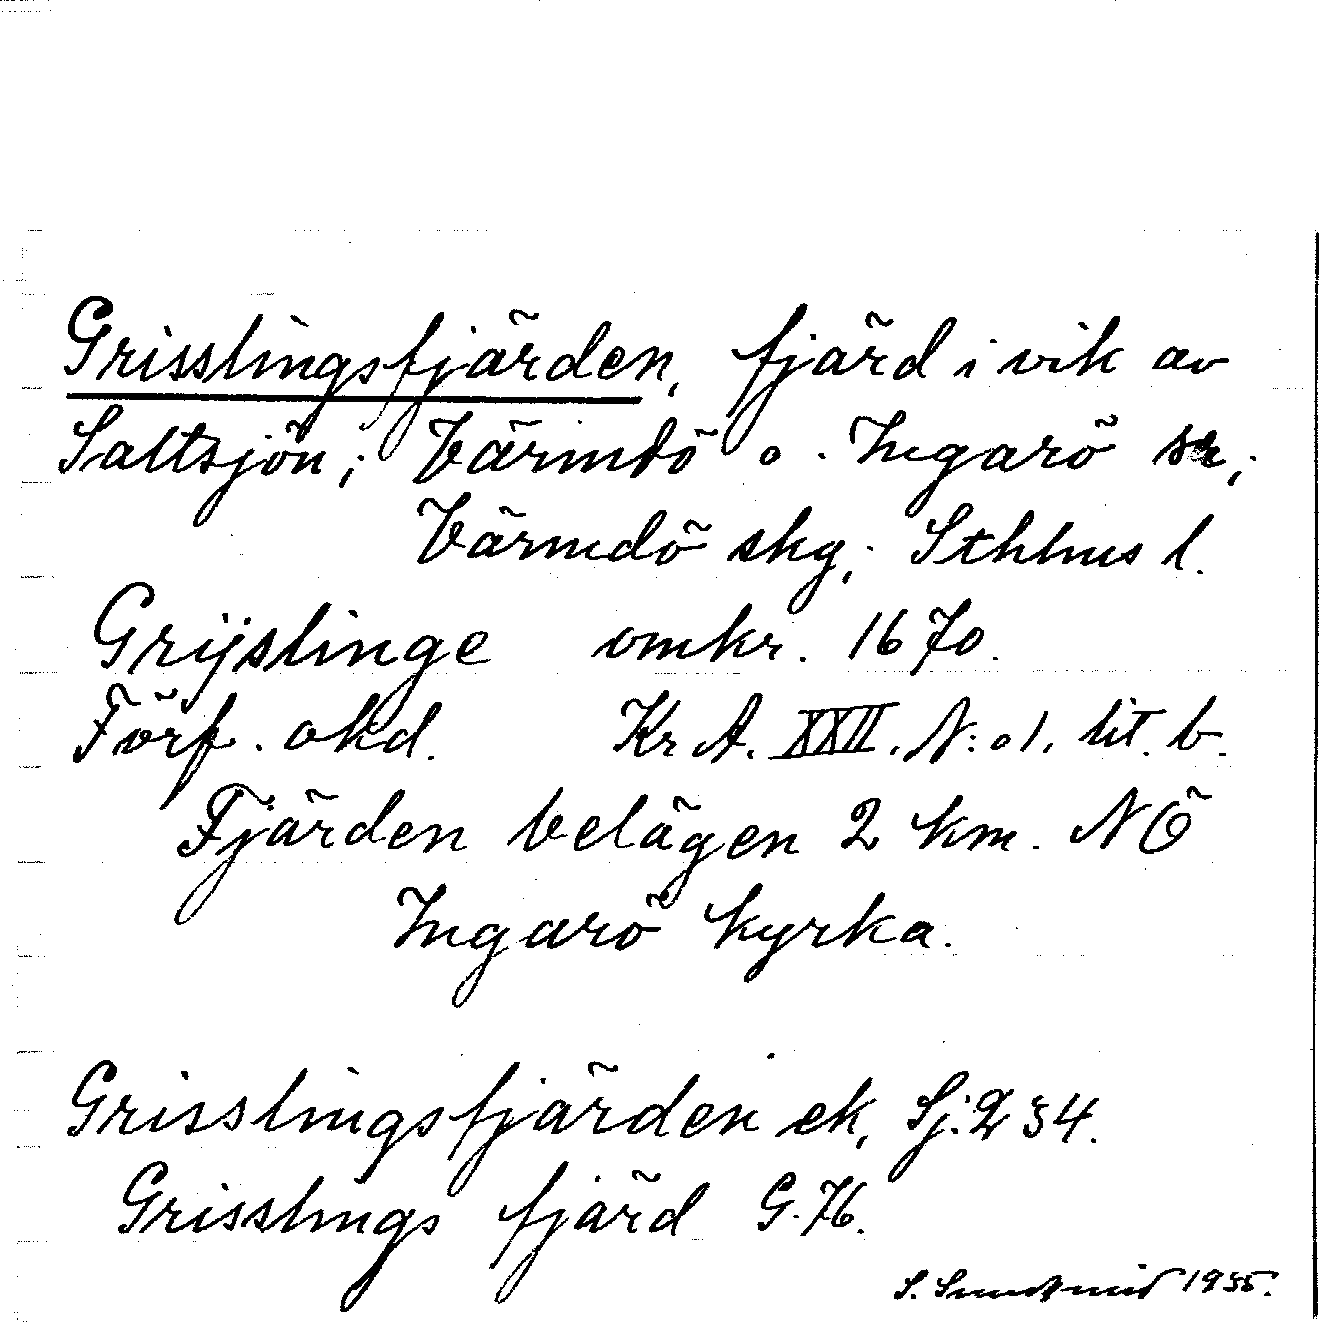 Grisslingsfjärden, fjärd i vik av
Saltsjön; Värmdö o. Ingarö sn;
Värmdö skg; Sthlms l.
Grijslinge omkr. 1670.
Förf. okd. Kr A. XXII. N:o 1. lit. b.
Fjärden belägen 2 km. NÖ
Ingarö kyrka.
Grisslingsfjärden ek, Sj. 234.
Grisslings fjärd G. 76.
S. 1935.